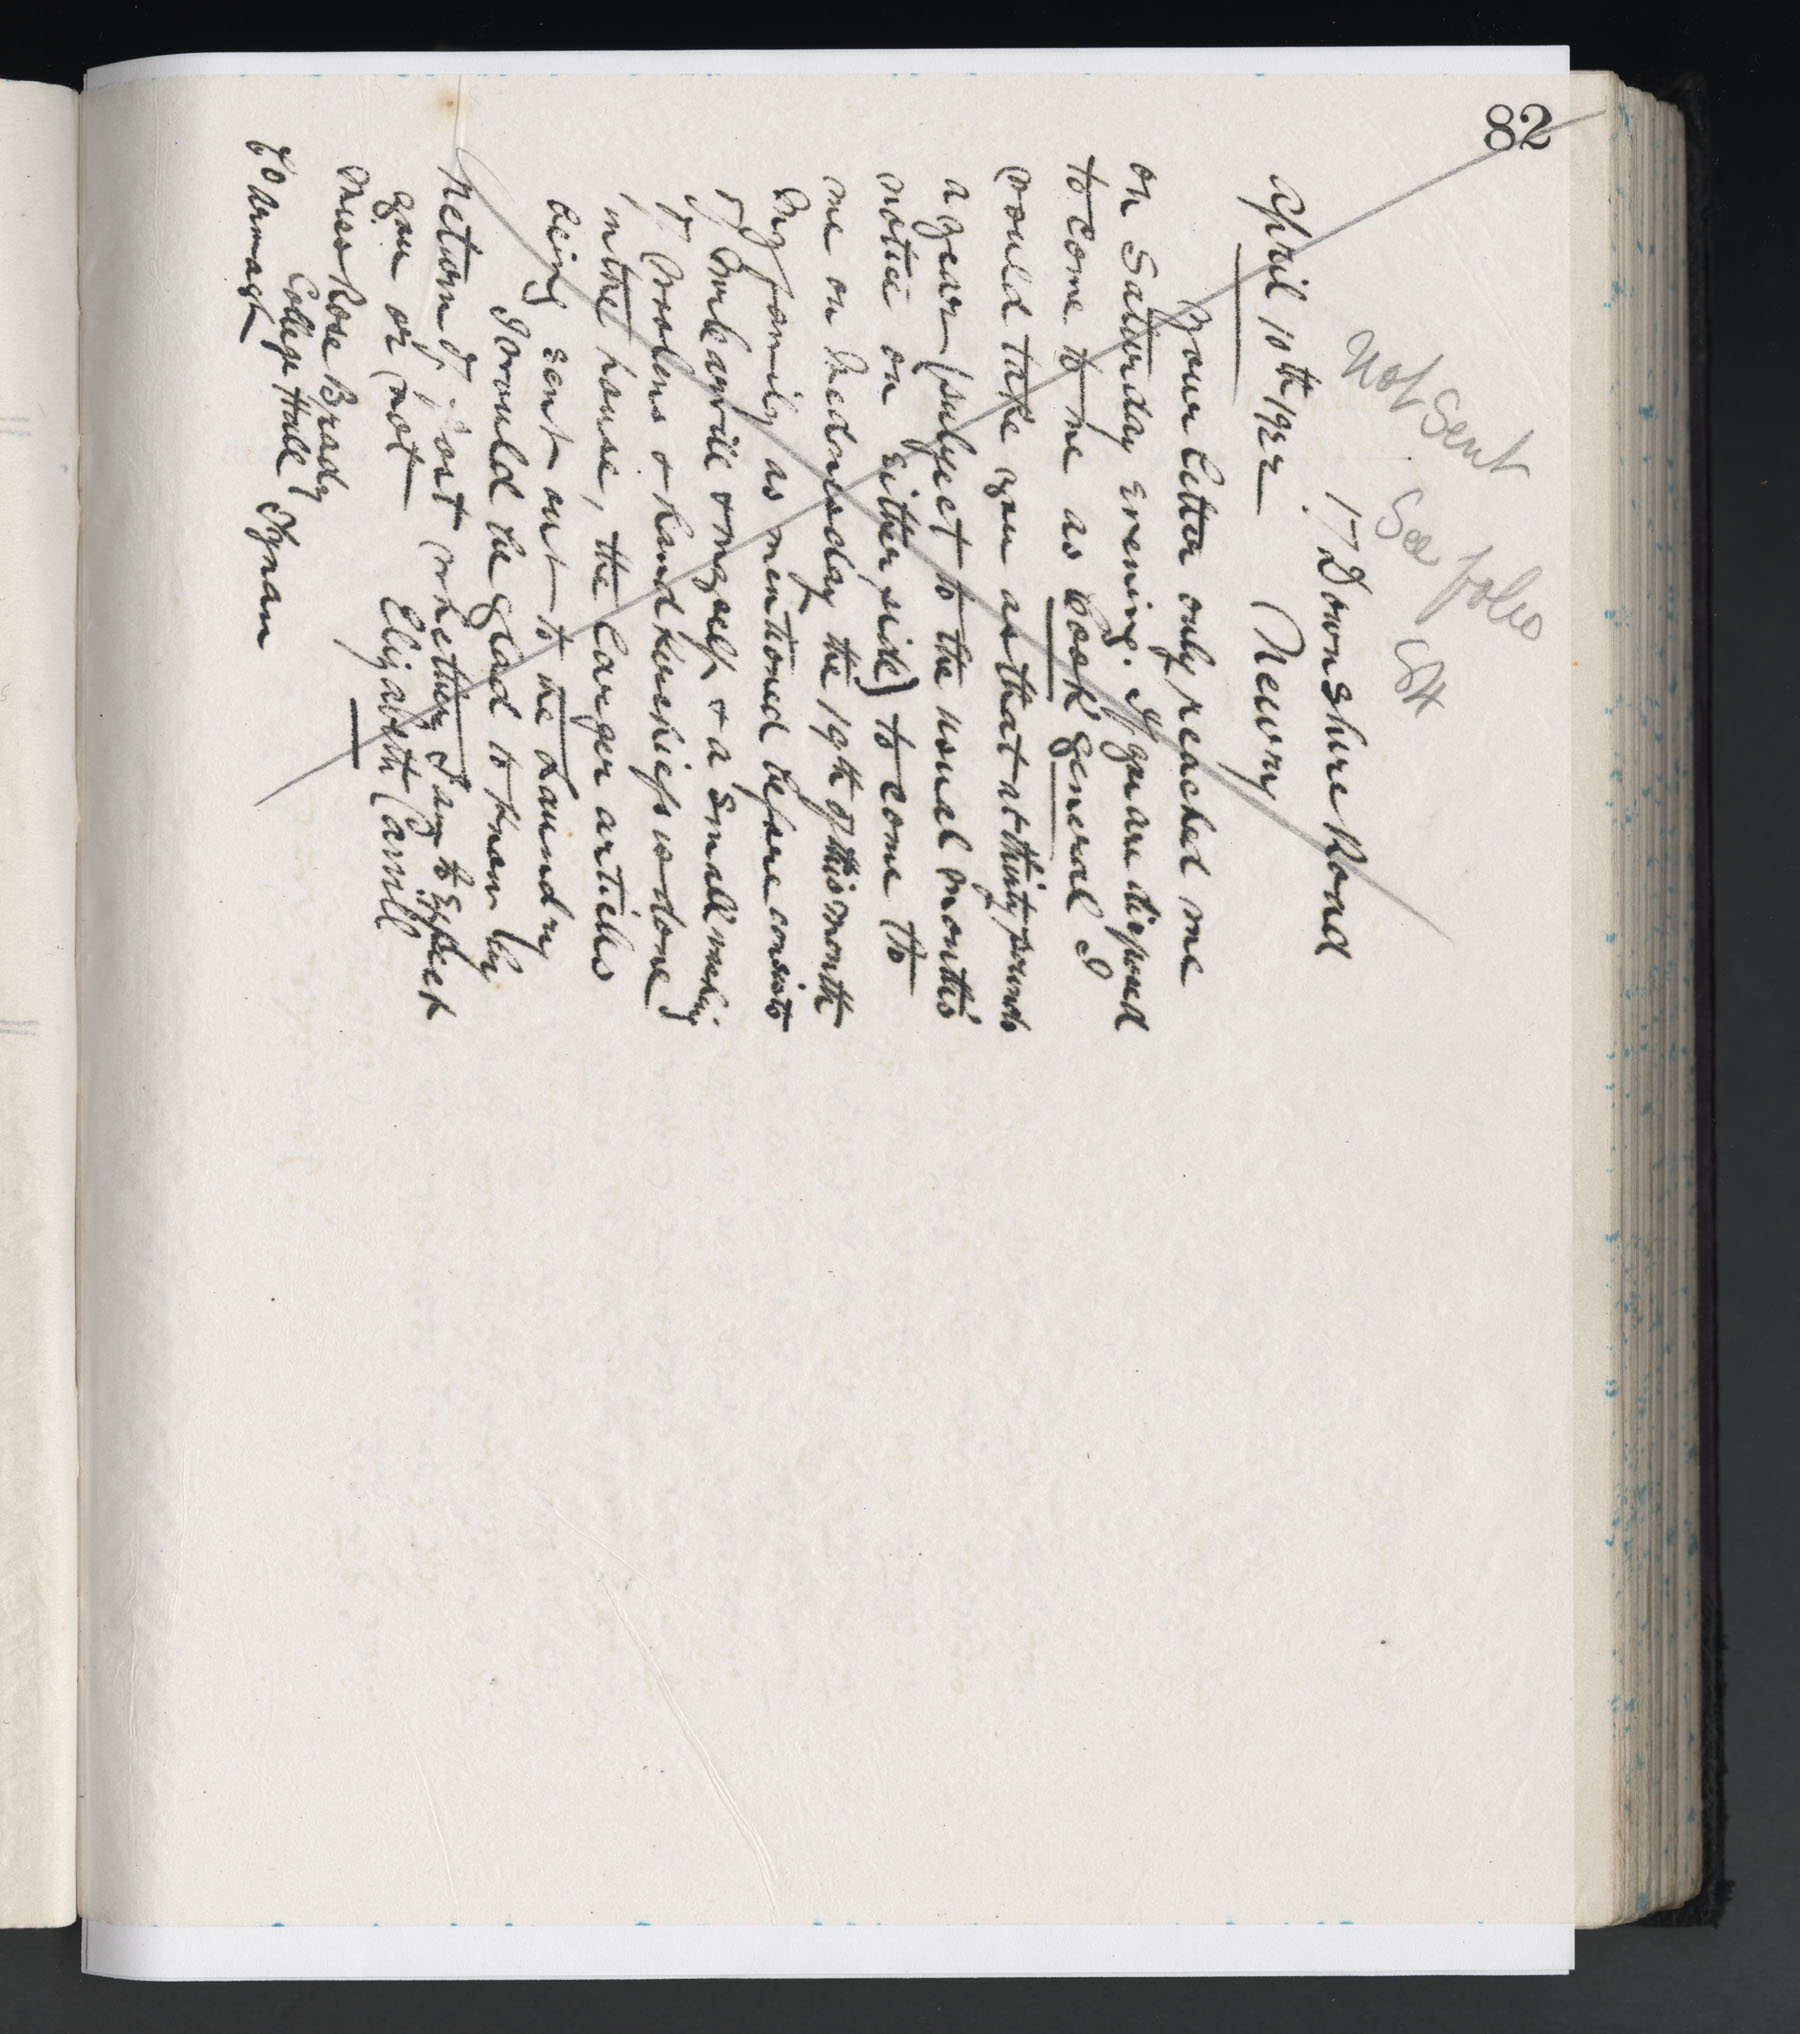 82
Not Sent
See folio
84
17 Downshire Road
Newry
April 10th 1922
Your letter only reached me
on Saturday evening. If you are disposed
to come to me as Cook General I
would take you as that at thirty pounds
a year (subject to the usual months'
notice on either side) to come to
me on Wednesday the 19th of this month
My family as mentioned before consists
of Mr & myself & a small washing
of Woolens & handkerchiefs is done
in the house, the larger articles
being sent out to the Laundry
I would be glad to know by
return of post whether I am to expect
you or not
Elizabeth Carvill
Miss Rose Brady
College Hall Tynan
Co Armagh